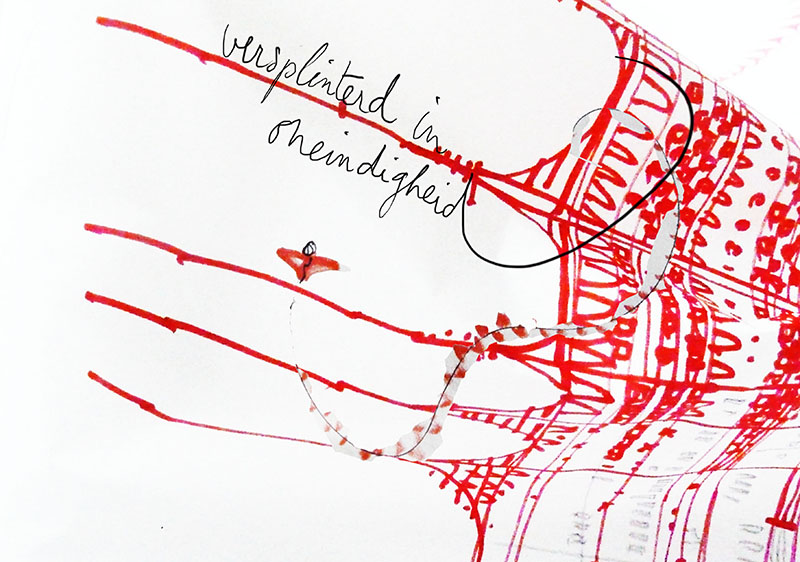 versplinterd in
oneindigheid